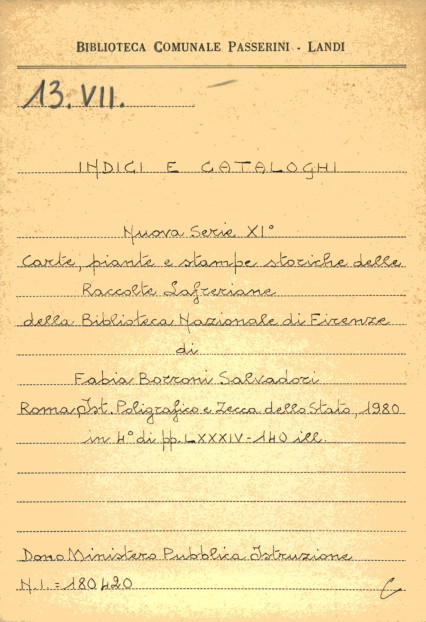 BIBLIOTECA COMUNALE PASSERINI - LANDI
13.VII.
INDICI E CATALOGHI
Nuova Serie XI°
Carte, piante e stampe storiche delle
Raccolte Lafreriane
della Biblioteca Nazionale di Firenze
di
Fabia Borroni Salvadori
Roma, Ist. Poligrafico e Zecca dello Stato, 1980
in 4° di pp. LXXXIV-140 ill.
Dono Ministero Pubblica Istruzione
N.I. = 180420